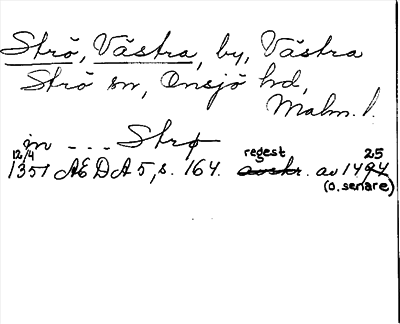 Strö, Västra, by, Västra
Strö sn, Onsjö hd,
Malm. l.
in - - - Strø
12/4 regest 25
1351 AEDA 5, s. 164. avskr. av 1494
(o. senare)